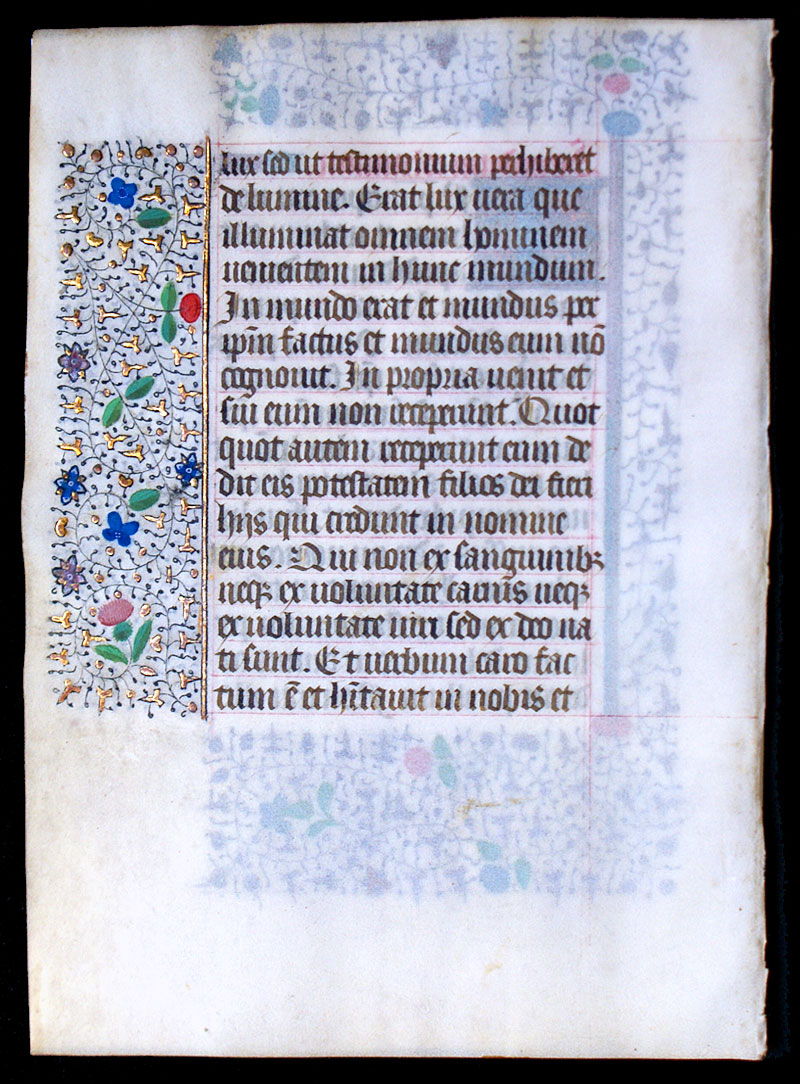 lux sed ut testimonium perhiberet
de lumine. Erat lux uera que
illuminat omnem hominem
uenientem in hunc mundum.
In mundo erat et mundus per
ip̄m factus et mundus eum nō
cognouit. In propria uenit et
sui eum non receperunt. Quot
quot autem receperunt eum de
dit eis potestatem filios dei fieri
hijs qui credunt in nomine
eius. Qui non ex sanguinibꝫ
neqꝫ ex uoluntate carnis neqꝫ
ex uoluntate uiri sed ex deo na
ti sunt. Et uerbum caro fac
tum ē et hītauit in nobis et